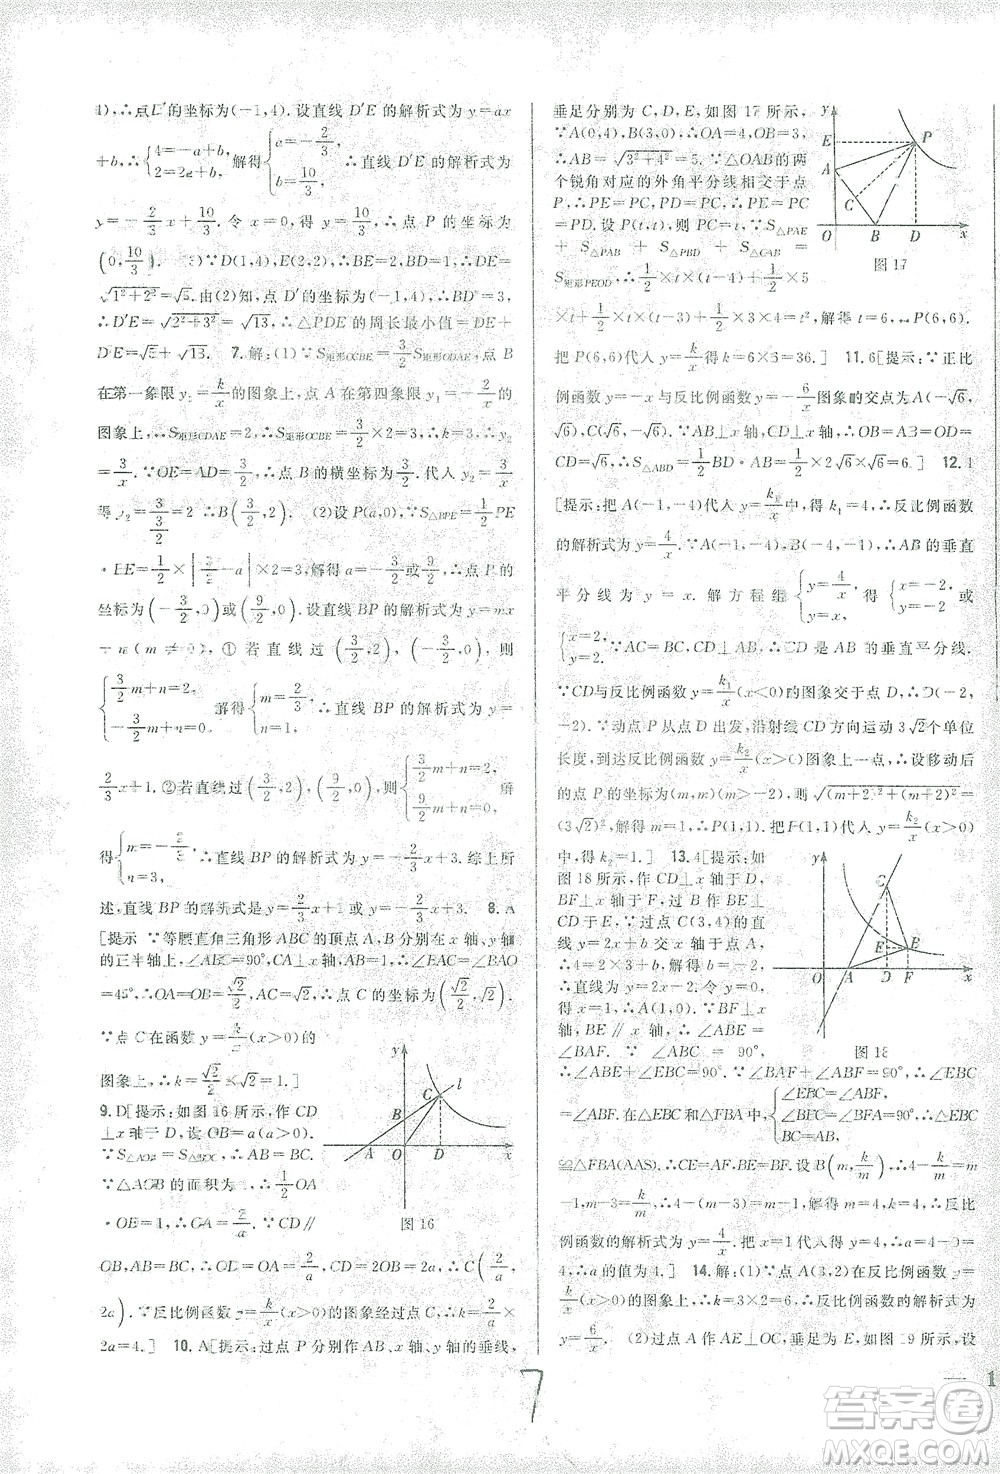 4),∴点D′的坐标为(-1,4).设直线D′E的解析式为y=ax
+b,∴{4=-a+b, 2=2a+b, 解得{a=-2/3, b=10/3, ∴直线D′E的解析式为
y=-2/3x+10/3.令x=0,得y=10/3,∴点P的坐标为
(0,10/3). (3)∵D(1,4),E(2,2),∴BE=2,BD=1,∴DE=
√1²+2²=√5.由(2)知,点D′的坐标为(-1,4),∴BD′=3,
∴D′E=√2²+3²=√13,∴△PDE的周长最小值=DE+
D′E=√5+√13. 7.解:(1)∵S矩形OCBE=3/2S矩形ODAE,点B
在第一象限y₂=k/x的图象上,点A在第四象限y₁=-2/x的
图象上,∴S矩形ODAE=2,∴S矩形OCBE=3/2×2=3,∴k=3,∴y₂
=3/x.∵OE=AD=3/2,∴点B的横坐标为3/2.代入y₂=3/x
得y₂=3/(3/2)=2,∴B(3/2,2). (2)设P(a,0),∵S△BPE=1/2PE
·BE=1/2×|3/2-a|×2=3,解得a=-3/2或9/2,∴点P的
坐标为(-3/2,0)或(9/2,0).设直线BP的解析式为y=mx
+n(m≠0),①若直线过(3/2,2),(-3/2,0),则
{3/2m+n=2, -3/2m+n=0, 解得{m=2/3, n=1, ∴直线BP的解析式为y=
2/3x+1;②若直线过(3/2,2),(9/2,0),则{3/2m+n=2, 9/2m+n=0, 解
得{m=-2/3, n=3, ∴直线BP的解析式为y=-2/3x+3.综上所
述,直线BP的解析式是y=2/3x+1或y=-2/3x+3. 8.A
[提示:∵等腰直角三角形ABC的顶点A,B分别在x轴、y轴
的正半轴上,∠ABC=90°,CA⊥x轴,AB=1,∴∠BAC=∠BAO
=45°,∴OA=OB=√2/2,AC=√2,∴点C的坐标为(√2/2,√2).
∵点C在函数y=k/x(x>0)的
图象上,∴k=√2/2×√2=1.]
9.D[提示:如图16所示,作CD
⊥x轴于D,设OB=a(a>0).
∵S△AOB=S△BOC,∴AB=BC.
∵△AOB的面积为1,∴1/2OA
·OB=1,∴OA=2/a.∵CD∥
OB,AB=BC,∴OD=OA=2/a,CD=2OB=2a,∴C(2/a,
2a).∵反比例函数y=k/x(x>0)的图象经过点C,∴k=2/a×
2a=4.] 10.A[提示:过点P分别作AB、x轴、y轴的垂线,
图16
垂足分别为C,D,E,如图17所示.
∵A(0,4),B(3,0),∴OA=4,OB=3,
∴AB=√3²+4²=5.∵△OAB的两
个锐角对应的外角平分线相交于点
P,∴PE=PC,PD=PC,∴PE=PC=
PD.设P(t,t),则PC=t,∵S△PAE
+S△PAB+S△PBD+S△OAB=
S矩形PEOD,∴1/2×t×(t-4)+1/2×5
×t+1/2×t×(t-3)+1/2×3×4=t²,解得t=6,∴P(6,6).
把P(6,6)代入y=k/x得k=6×6=36.] 11.6[提示:∵正比
例函数y=-x与反比例函数y=-6/x的图象的交点为A(-√6,
√6),C(√6,-√6),AB⊥x轴,CD⊥x轴,∴OB=AB=OD=
CD=√6,∴S△ABD=1/2BD·AB=1/2×2√6×√6=6.] 12.1
[提示:把A(-1,-4)代入y=k₁/x中,得k₁=4,∴反比例函数
的解析式为y=4/x.∵A(-1,-4),B(-4,-1),∴AB的垂直
平分线为y=x.解方程组{y=4/x, y=x, 得{x=-2, y=-2 或
{x=2, y=2.∵AC=BC,CD⊥AB,∴CD是AB的垂直平分线.
∵CD与反比例函数y=k₁/x(x<0)的图象交于点D,∴D(-2,
-2).∵动点P从点D出发,沿射线CD方向运动3√2个单位
长度,到达反比例函数y=k₂/x(x>0)图象上一点,∴设移动后
的点P的坐标为(m,m)(m>-2),则√(m+2)²+(m+2)²=
(3√2)²,解得m=1,∴P(1,1).把P(1,1)代入y=k₂/x(x>0)
中,得k₂=1.] 13.4[提示:如
图18所示,作CD⊥x轴于D,
BF⊥x轴于F,过B作BE⊥
CD于E.∵过点C(3,4)的直线
y=2x+b交x轴于点A,
∴4=2×3+b,解得b=-2,
∴直线为y=2x-2.令y=0,则求
得x=1,∴A(1,0).∵BF⊥x
轴,BE∥x轴,∴∠ABE=
∠BAF.∵∠ABC=90°,
∴∠ABE+∠EBC=90°.∵∠BAF+∠ABF=90°,∴∠EBC=
∠ABF.在△EBC和△FBA中,{∠EBC=∠ABF, ∠BEC=∠BFA=90°, BC=AB, ∴△EBC
≌△FBA(AAS),∴CE=AF,BE=BF.设B(m,k/m),∵4-k/m=m
-1,m-3=k/m,∴4-(m-3)=m-1,解得m=4,k=4,∴反比
例函数的解析式为y=4/x.把x=1代入得y=4,∴a=4-0=
4,∴a的值为4.] 14.解:(1)∵点A(3,2)在反比例函数
y=k/x的图象上,∴k=3×2=6,∴反比例函数的解析式为
y=6/x. (2)过点A作AE⊥OC,垂足为E,如图19所示,设
图17
图18
7
1
答案卷
MXQE.COM